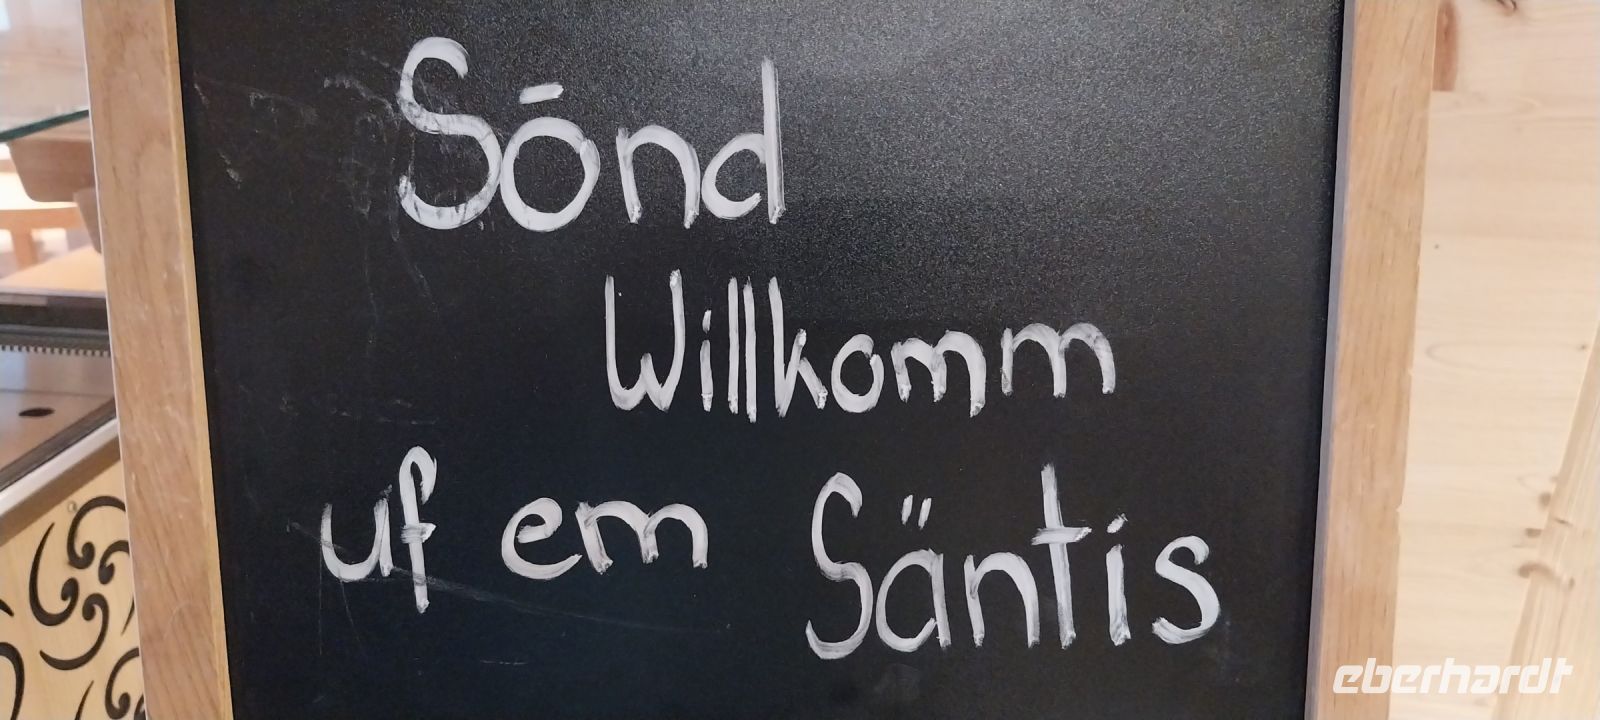 Sōnd
Willkomm
uf em Säntis
eberhardt